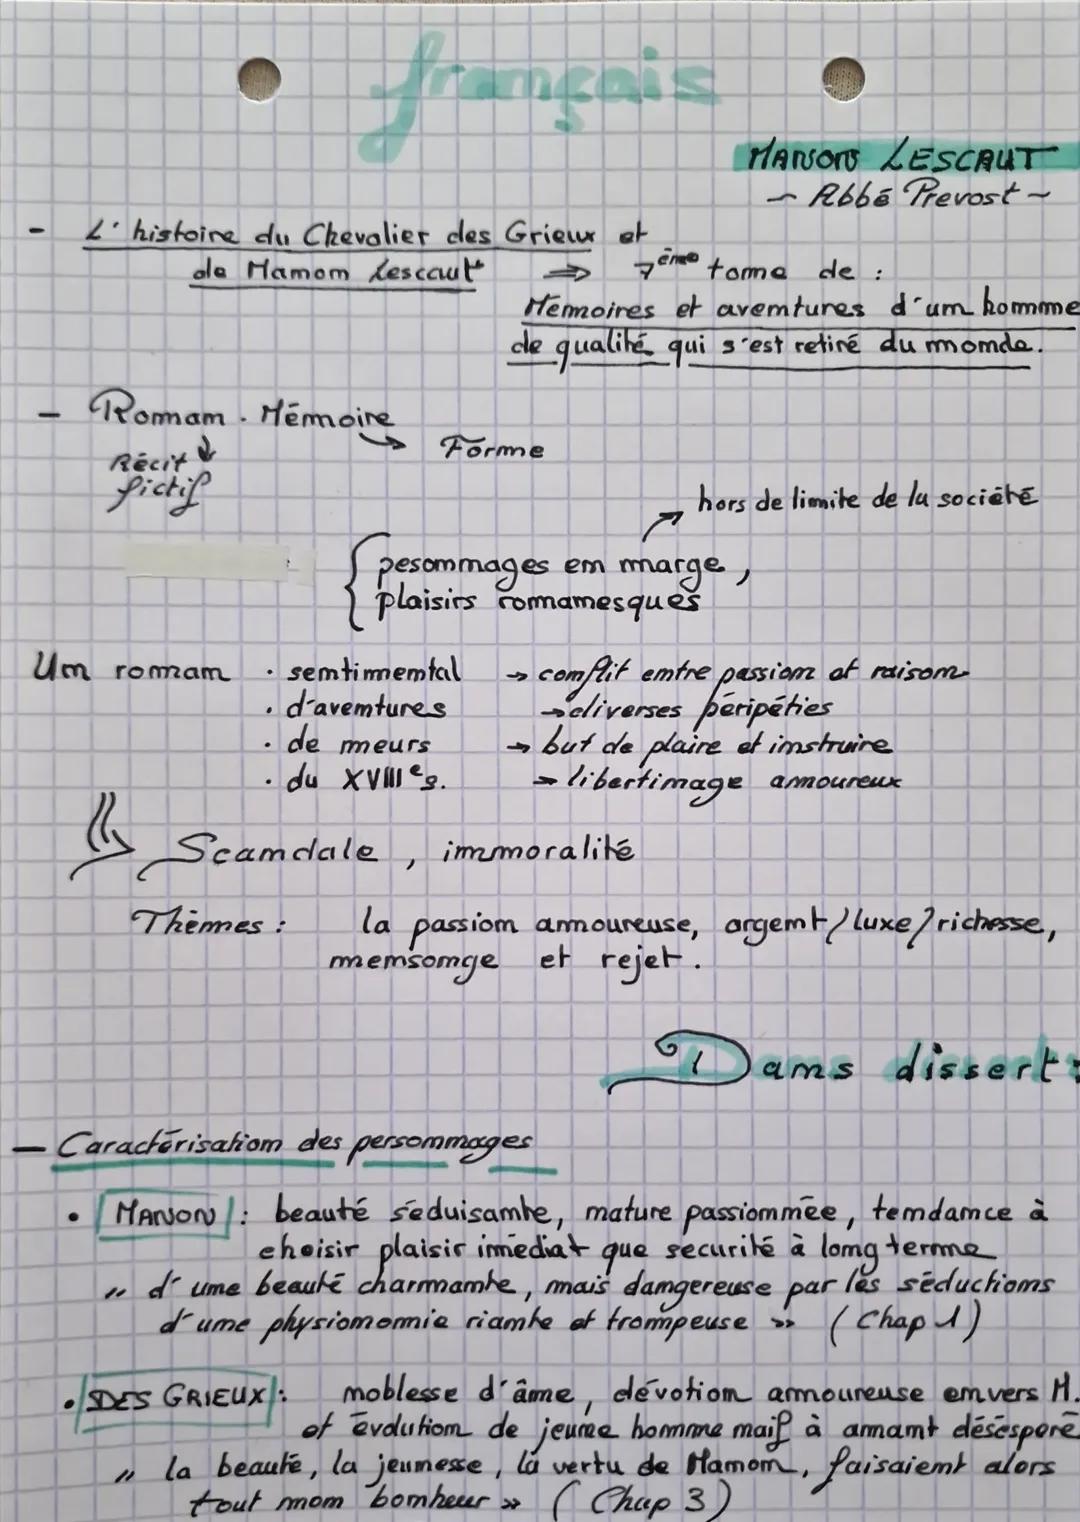 français
MANON LESCAUT
~ Abbé Prevost ~
- L'histoire du Chevalier des Grieux et
de Manon Lescaut ⇒ 7ème tome de :
Mémoires et aventures d'un homme
de qualité qui s'est retiré du monde.
- Roman - Mémoire
→ Forme
Récit
fictif
hors de limite de la société
pesonnages en marge,
plaisirs romanesques
Un roman · sentimental → conflit entre passion et raison
· d'aventures → diverses péripéties
· de meurs → but de plaire et instruire
· du XVIIIe s. → libertinage amoureux
Scandale, immoralité
Thèmes : la passion amoureuse, argent/luxe/richesse,
mensonge et rejet.
Dans dissert:
- Caractérisation des personnages
• MANON : beauté séduisante, nature passionnée, tendance à
choisir plaisir imediat que securité à long terme
" d'une beauté charmante, mais dangereuse par les séductions
d'une physionomie riante et trompeuse » (Chap 1)
• DES GRIEUX : noblesse d'âme, dévotion amoureuse envers M.
et évolution de jeune homme naif à amant désespéré
" la beauté, la jeunesse, la vertu de Manon, faisaient alors
tout mon bonheur » (Chap 3)